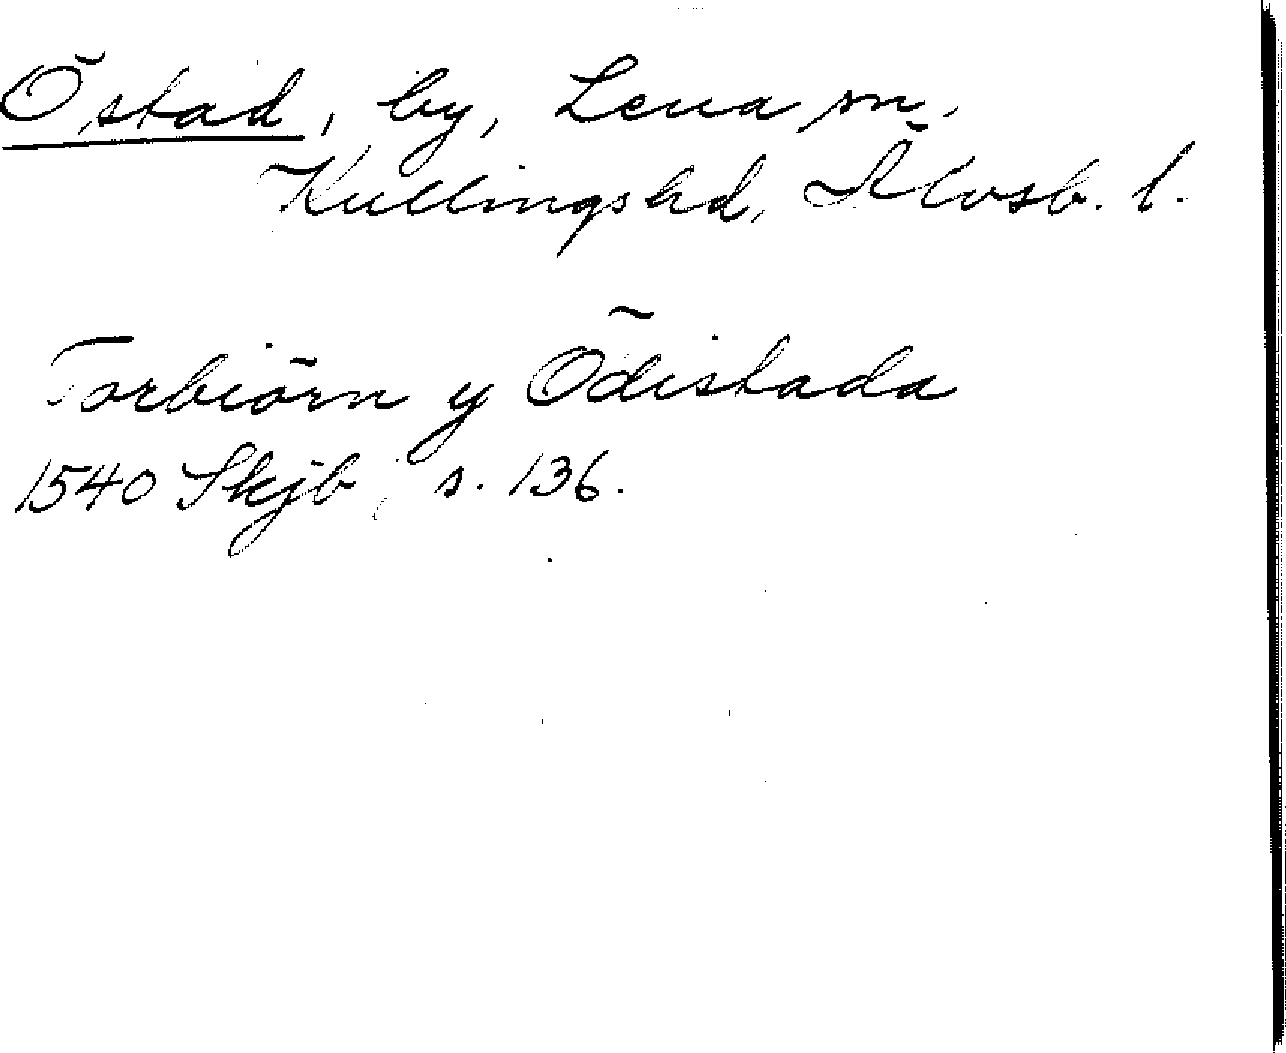 Östad, by, Lena sn.
Kullings hd, Älvsb. l.
Torbiörn y Ödistada
1540 Skjb, s. 136.